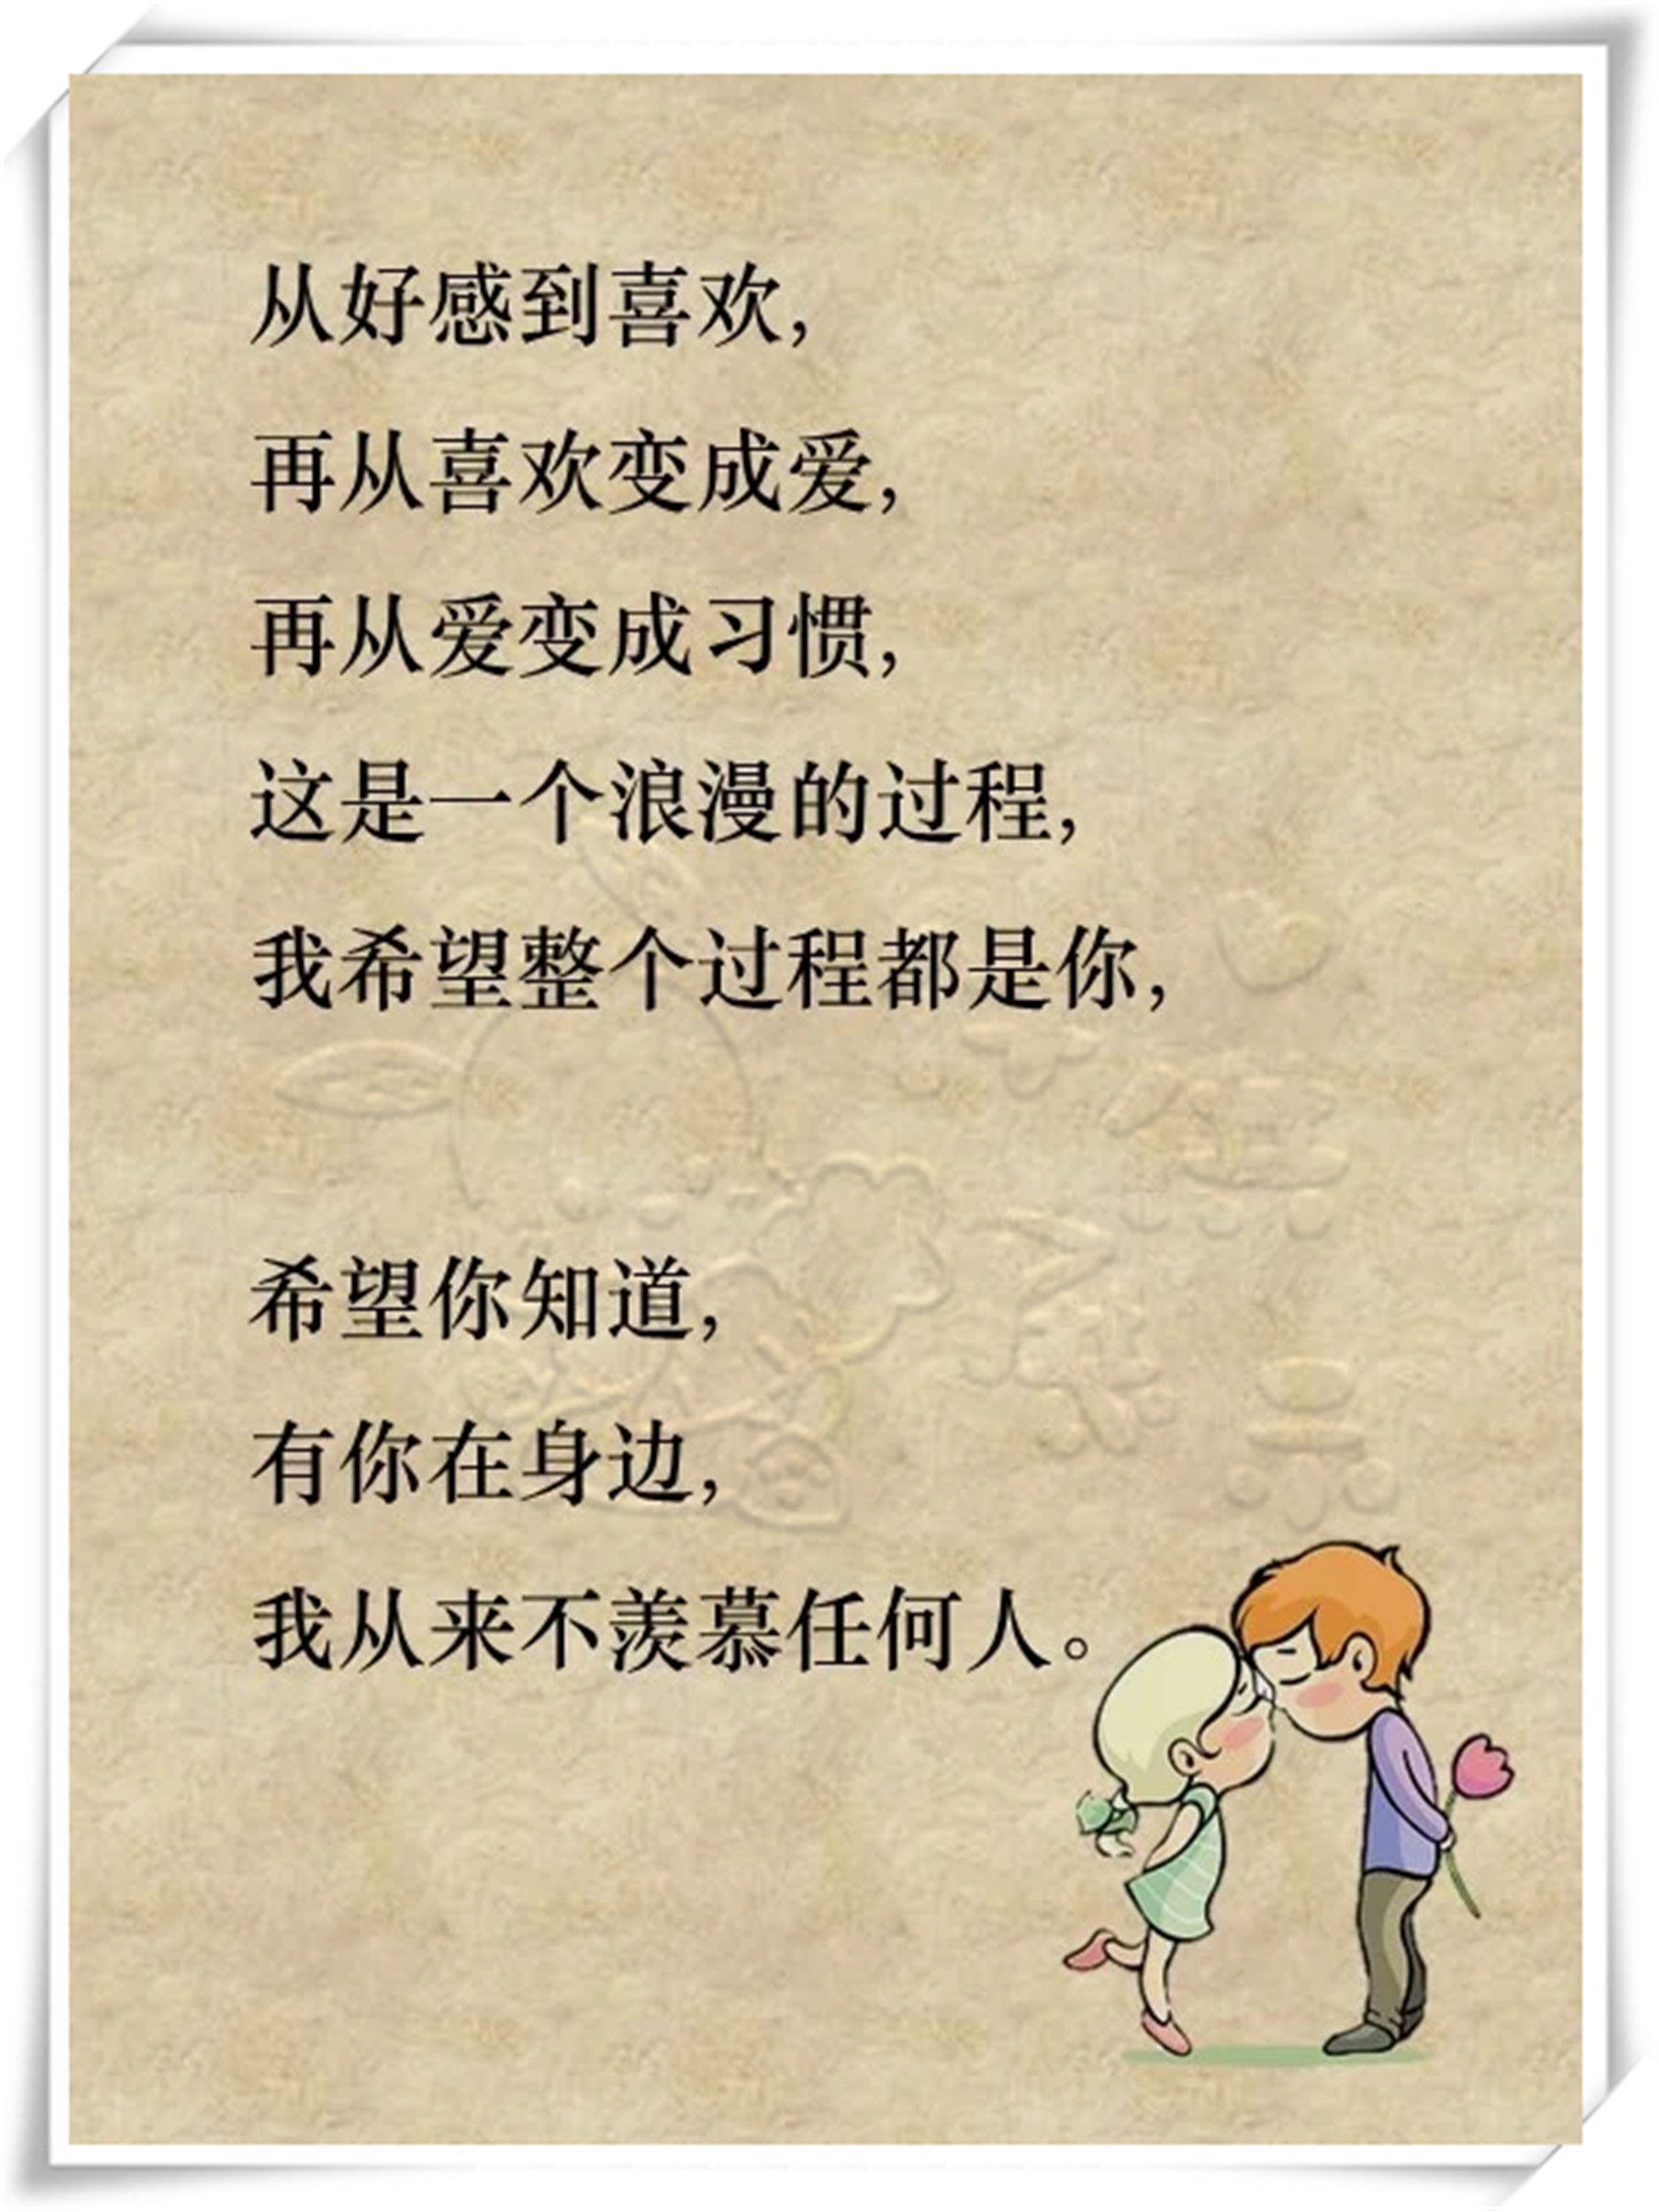 从好感到喜欢，
再从喜欢变成爱，
再从爱变成习惯，
这是一个浪漫的过程，
我希望整个过程都是你，
希望你知道，
有你在身边，
我从来不羡慕任何人。